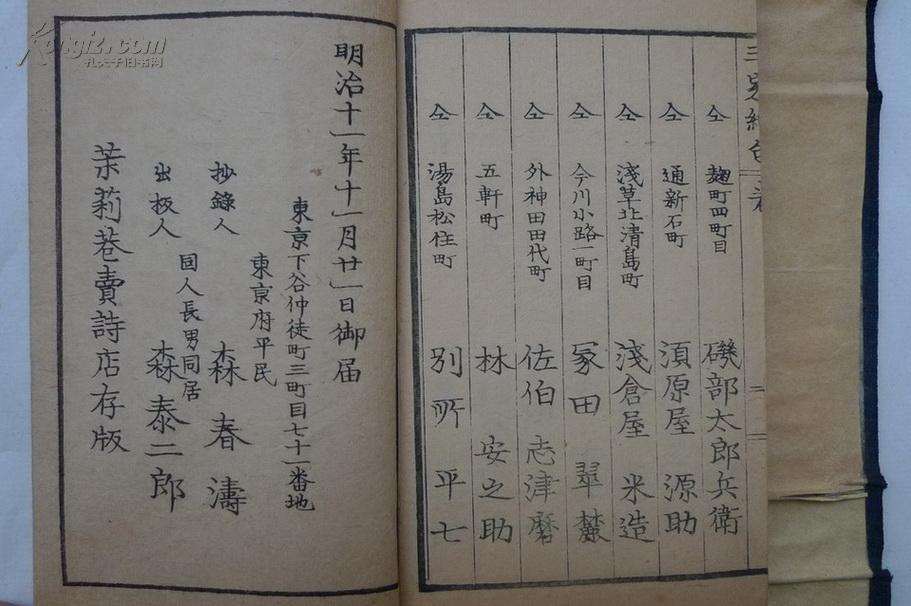 三家絶句
仝 麹町四町目 磯部太郎兵衛
仝 通新石町 須原屋源助
仝 淺草北清島町 淺倉屋米造
仝 今川小路一町目 冢田翠麓
仝 外神田田代町 佐伯志津磨
仝 五軒町 林安之助
仝 湯島松住町 別所平七
明治十一年十一月廿一日御届
東京下谷仲徒町三町目七十一番地
東京府平民
抄錄人 森春濤
同人長男同居
出板人 森泰二郎
茉莉巷賣詩店存版
Kongfz.com
孔夫子旧书网